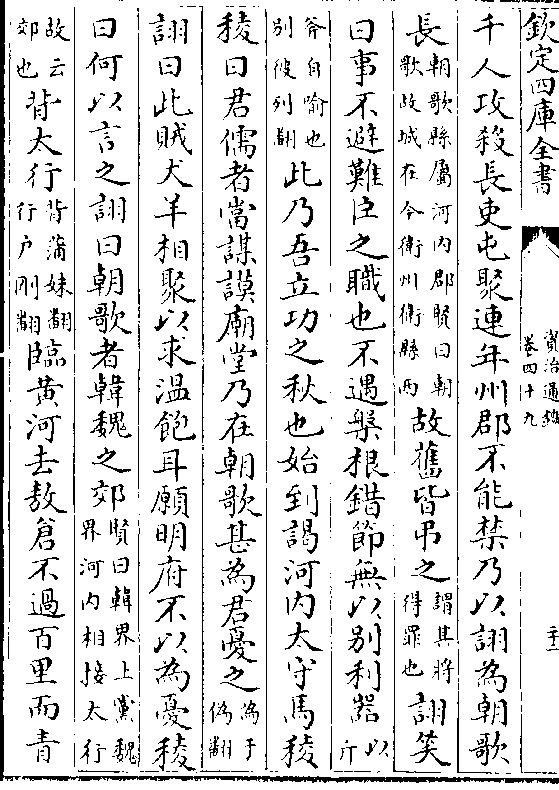 欽定四庫全書
資治通鑑
卷四十九
千人攻殺長吏屯聚連年州郡不能禁乃以詡為朝歌
長朝歌縣屬河内郡賢曰朝歌故城在今衛州衛縣西故舊皆弔之謂其將得罪也詡笑
曰事不避難臣之職也不遇槃根錯節無以别利器以斤
斧自喻也别彼列翻此乃吾立功之秋也始到謁河内太守馬稜
稜曰君儒者當謀謨廟堂乃在朝歌甚為君憂之為于偽翻
詡曰此賊犬羊相聚以求温飽耳願明府不以為憂稜
曰何以言之詡曰朝歌者韓魏之郊賢曰韓界上黨魏界河内相接太行
故云郊也背太行背蒲妹翻行户剛翻臨黄河去敖倉不過百里而青